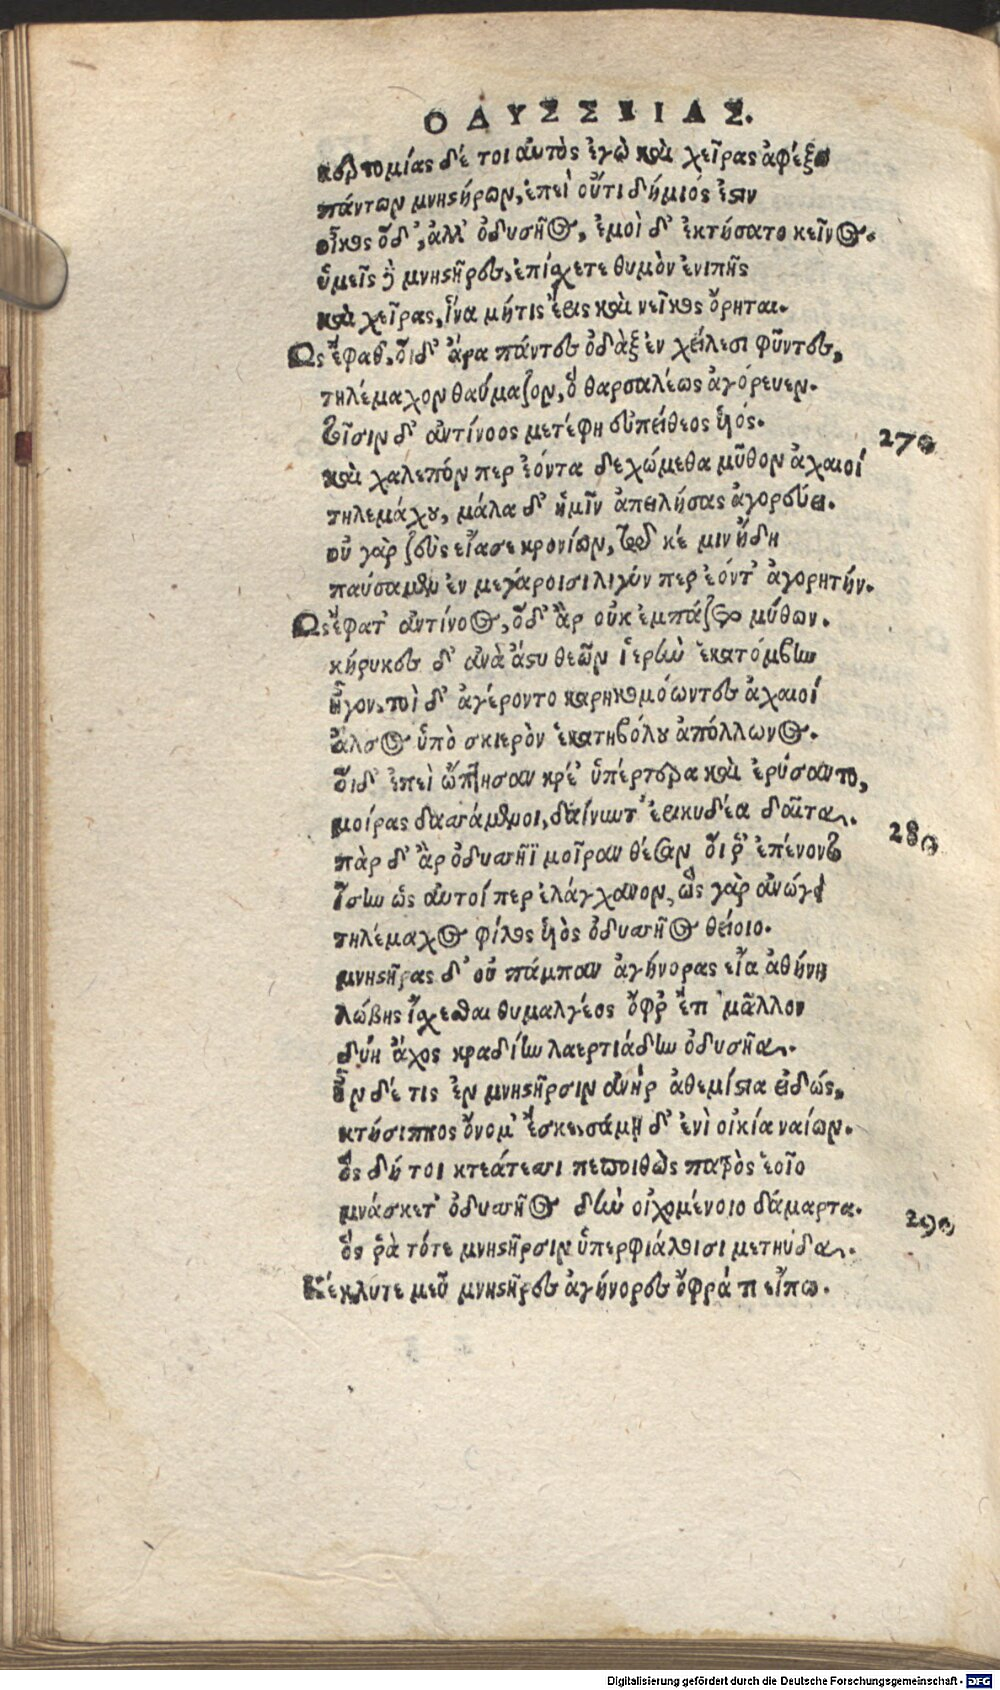 ΟΔΥΣΣΕΙΑΣ.
κερτομίας δέ τοι αὐτὸς ἐγὼ καὶ χεῖρας ἀφέξω
πάντων μνηστήρων, ἐπεὶ οὔτι δήμιός ἐστιν
οἶκος ὅδ', ἀλλ' ὀδυσῆος, ἐμοὶ δ' ἐκτήσατο κεῖνος.
ὑμεῖς δὲ μνηστῆρες, ἐπίσχετε θυμὸν ἐνιπῆς
καὶ χεῖρας, ἵνα μήτις ἔρις καὶ νεῖκος ὄρηται.
Ως ἔφαθ', οἱ δ' ἄρα πάντες ὀδὰξ ἐν χείλεσι φῦντες,
τηλέμαχον θαύμαζον, ὃ θαρσαλέως ἀγόρευεν.
τοῖσιν δ' ἀντίνοος μετέφη εὐπείθεος υἱός.
270
καὶ χαλεπόν περ ἐόντα δεχώμεθα μῦθον ἀχαιοί
τηλεμάχου, μάλα δ' ἡμῖν ἀπειλήσας ἀγορεύει.
οὐ γὰρ ζεὺς εἴασε κρονίων, τῷ κέ μιν ἤδη
παύσαμεν ἐν μεγάροισι λιγύν περ ἐόντ' ἀγορητήν.
Ως ἔφατ' ἀντίνοος, ὁ δ' ἂρ οὐκ ἐμπάζετο μύθων.
κήρυκες δ' ἀνὰ ἄστυ θεῶν ἱερὴν ἑκατόμβην
ἦγον. τοὶ δ' ἀγέροντο καρηκομόωντες ἀχαιοί
ἄλσος ὕπο σκιερὸν ἑκατηβόλου ἀπόλλωνος.
οἱ δ' ἐπεὶ ὤπτησαν κρέ' ὑπέρτερα καὶ ἐρύσαντο,
μοίρας δασσάμενοι, δαίνυντ' ἐρικυδέα δαῖτα.
280
πὰρ δ' ἂρ ὀδυσσῆϊ μοῖραν θέσαν οἵ ῥ' ἐπένοντο
ἴσην ὡς αὐτοί περ ἐλάγχανον, ὣς γὰρ ἀνώγει
τηλέμαχος φίλος υἱὸς ὀδυσσῆος θείοιο.
μνηστῆρας δ' οὐ πάμπαν ἀγήνορας εἴα ἀθήνη
λώβης ἴσχεσθαι θυμαλγέος ὄφρ' ἔτι μᾶλλον
δύη ἄχος κραδίην λαερτιάδην ὀδυσῆα.
ἦν δέ τις ἐν μνηστῆρσιν ἀνὴρ ἀθεμίστια εἰδώς,
κτήσιππος ὄνομ' ἔσκε, σάμῃ δ' ἐνὶ οἰκία ναίων.
ὃς δή τοι κτεάτεσσι πεποιθὼς πατρὸς ἑοῖο
μνάσκετ' ὀδυσσῆος δὴν οἰχομένοιο δάμαρτα.
290
ὅς ῥα τότε μνηστῆρσιν ὑπερφιάλοισι μετηύδα.
Κέκλυτε μεῦ μνηστῆρες ἀγήνορες ὄφρά τι εἴπω.
Digitalisierung gefördert durch die Deutsche Forschungsgemeinschaft - DFG